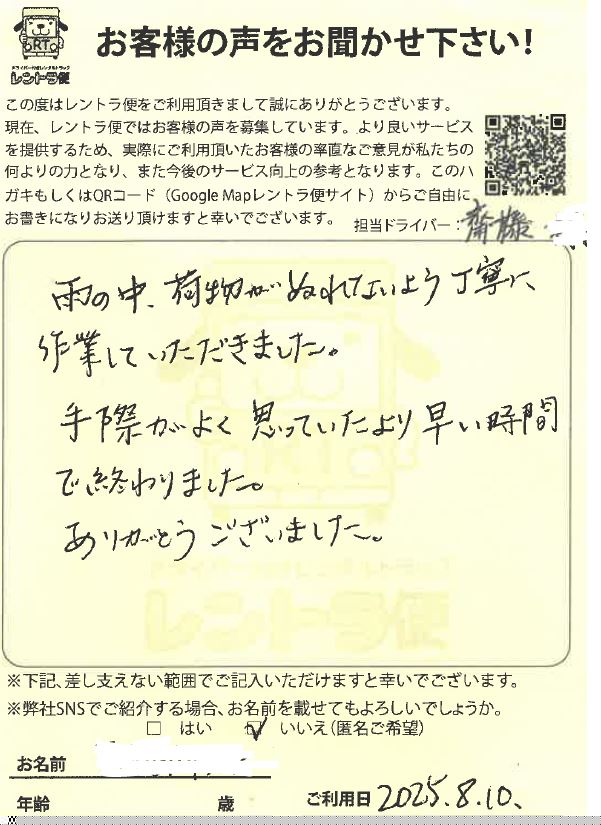 RT
ドライバー付きレンタルトラック
レントラ便
お客様の声をお聞かせ下さい!
この度はレントラ便をご利用頂きまして誠にありがとうございます。
現在、レントラ便ではお客様の声を募集しています。より良いサービス
を提供するため、実際にご利用頂いたお客様の率直なご意見が私たちの
何よりの力となり、また今後のサービス向上の参考となります。このハ
ガキもしくはQRコード（Google Mapレントラ便サイト）からご自由に
お書きになりお送り頂けますと幸いでございます。
担当ドライバー：齋藤
雨の中、荷物がぬれてないよう丁寧に、
作業していただきました。
手際がよく思っていたより早い時間
で終わりました。
ありがとうございました。
レントラ便
※下記、差し支えない範囲でご記入いただけますと幸いでございます。
※弊社SNSでご紹介する場合、お名前を載せてもよろしいでしょうか。
□ はい ☑ いいえ（匿名ご希望）
お名前
年齢 歳 ご利用日 2025.8.10.